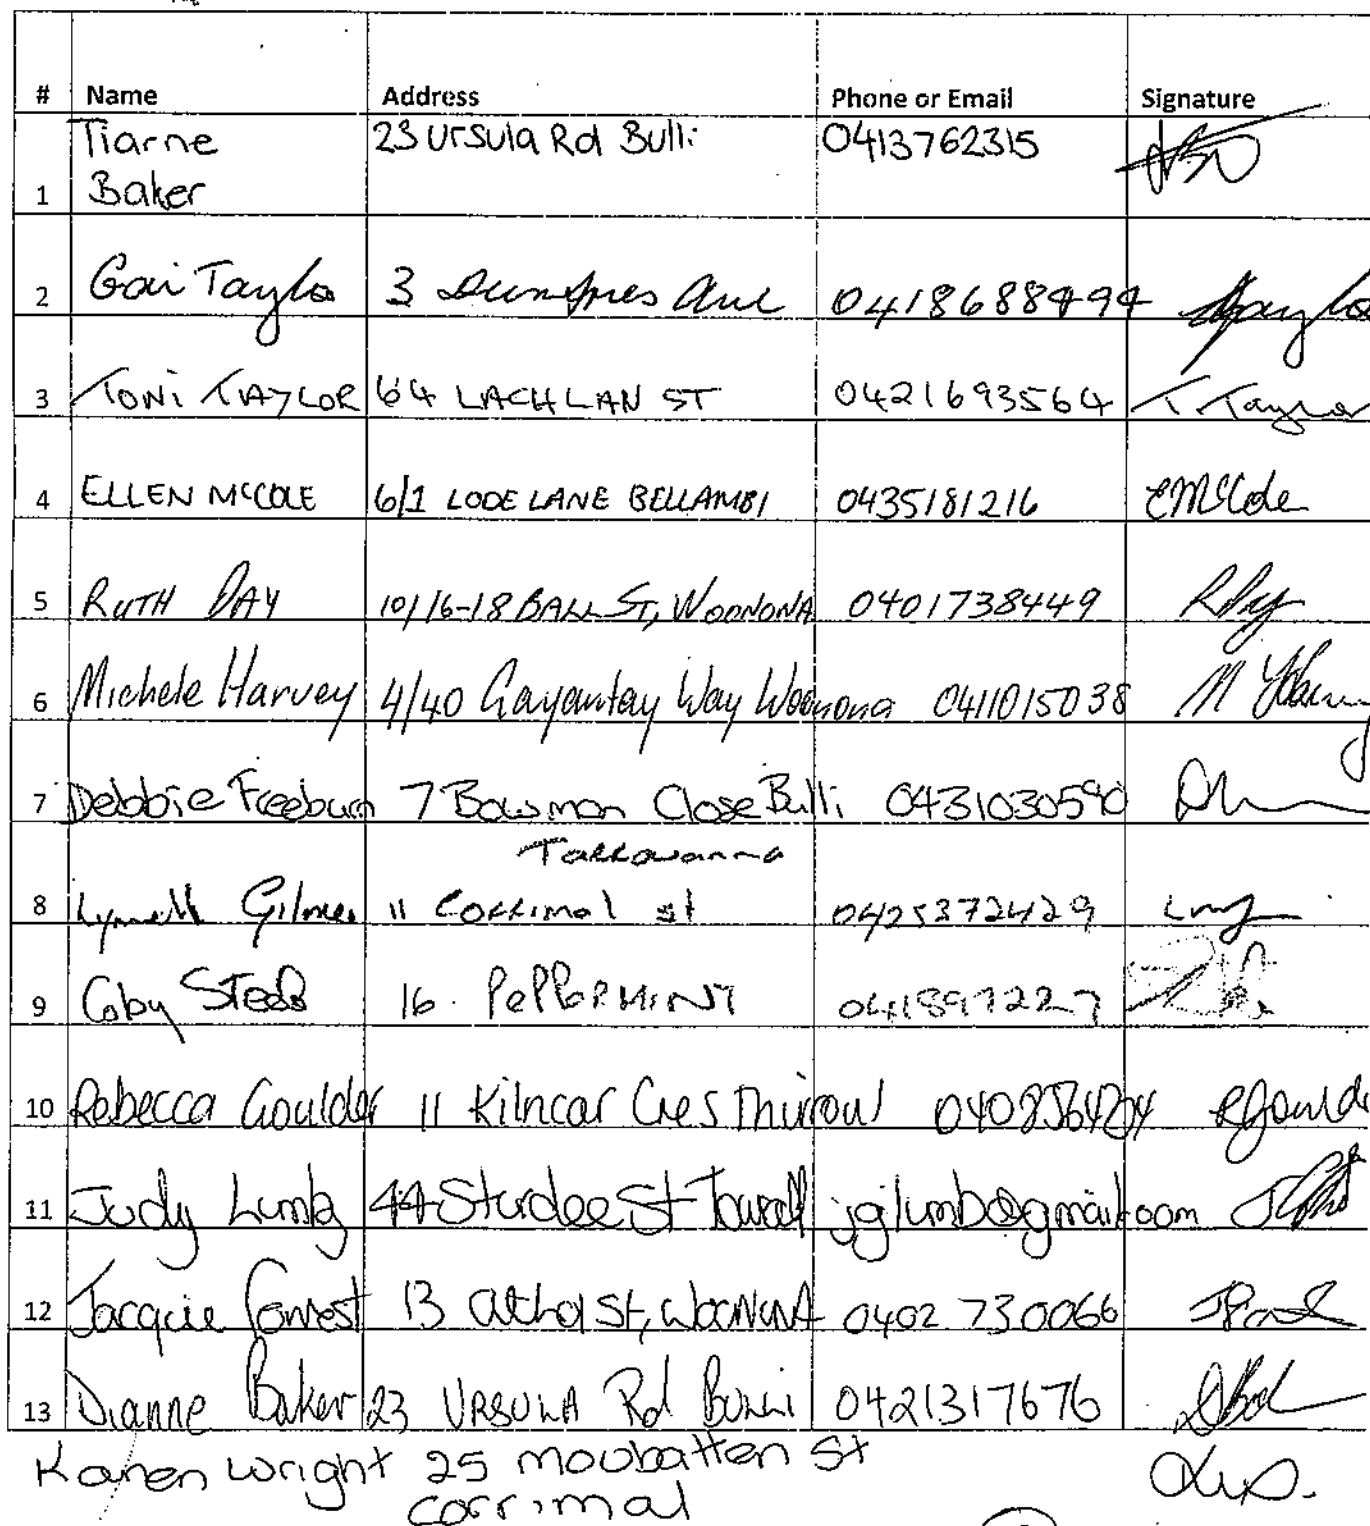 # Name Address Phone or Email Signature
Tiarne 23 Ursula Rd Bulli 0413762315
1 Baker
2 Gai Taylor 3 Dumfries Ave 0418688494
3 TONI TAYLOR 64 LACHLAN ST 0421693564 T. Taylor
4 ELLEN MCCOLE 6/1 LODE LANE BELLAMBI 0435181216 EMcCole
5 RUTH DAY 10/16-18 BALL ST, WOONONA 0401738449 RDay
6 Michele Harvey 4/40 Gayantay Way Woonona 0411015038 M Harvey
7 Debbie Freeburn 7 Bowman Close Bulli 0431030590
Tarrawanna
8 Gilmer 11 Corrimal st 0425372429
9 Coby Steeds 16. PePPeRMiNT 041897227
10 Rebecca Goulder 11 Kilncar Cres Thirroul
11 Judy Lumb 44 Sturdee St Towradgi jglumb@gmail.com
12 Jacquie Forrest 13 athol St, Woonona 0402 730066
13 Dianne Baker 23 URSULA Rd BULLi 0421317676
Karen Wright 25 moubatten St
corrimal